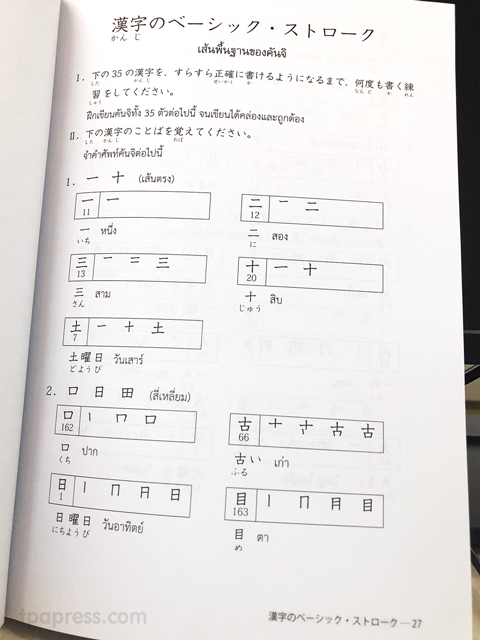 漢字のベーシック・ストローク
かん じ
เส้นพื้นฐานของคันจิ
I. 下の35の漢字を、すらすら正確に書けるようになるまで、何度も書く練
した かんじ せいかく か なんど か れん
習をしてください。
しゅう
ฝึกเขียนคันจิทั้ง 35 ตัวต่อไปนี้ จนเขียนได้คล่องและถูกต้อง
II. 下の漢字のことばを覚えてください。
した かんじ おぼ
จำคำศัพท์คันจิต่อไปนี้
1. 一 十 (เส้นตรง)
一 一
11
二 一 二
12
一 หนึ่ง
いち
二 สอง
に
三 一 二 三
13
十 一 十
20
三 สาม
さん
十 สิบ
じゅう
土 一 十 土
7
土曜日 วันเสาร์
どようび
2. 口 日 田 (สี่เหลี่ยม)
口 丨 冂 口
162
古 十 古 古
66
口 ปาก
くち
古い เก่า
ふる
日 丨 冂 日 日
1
目 丨 冂 月 目
163
日曜日 วันอาทิตย์
にちようび
目 ตา
め
tpapress.com
漢字のベーシック・ストローク — 27